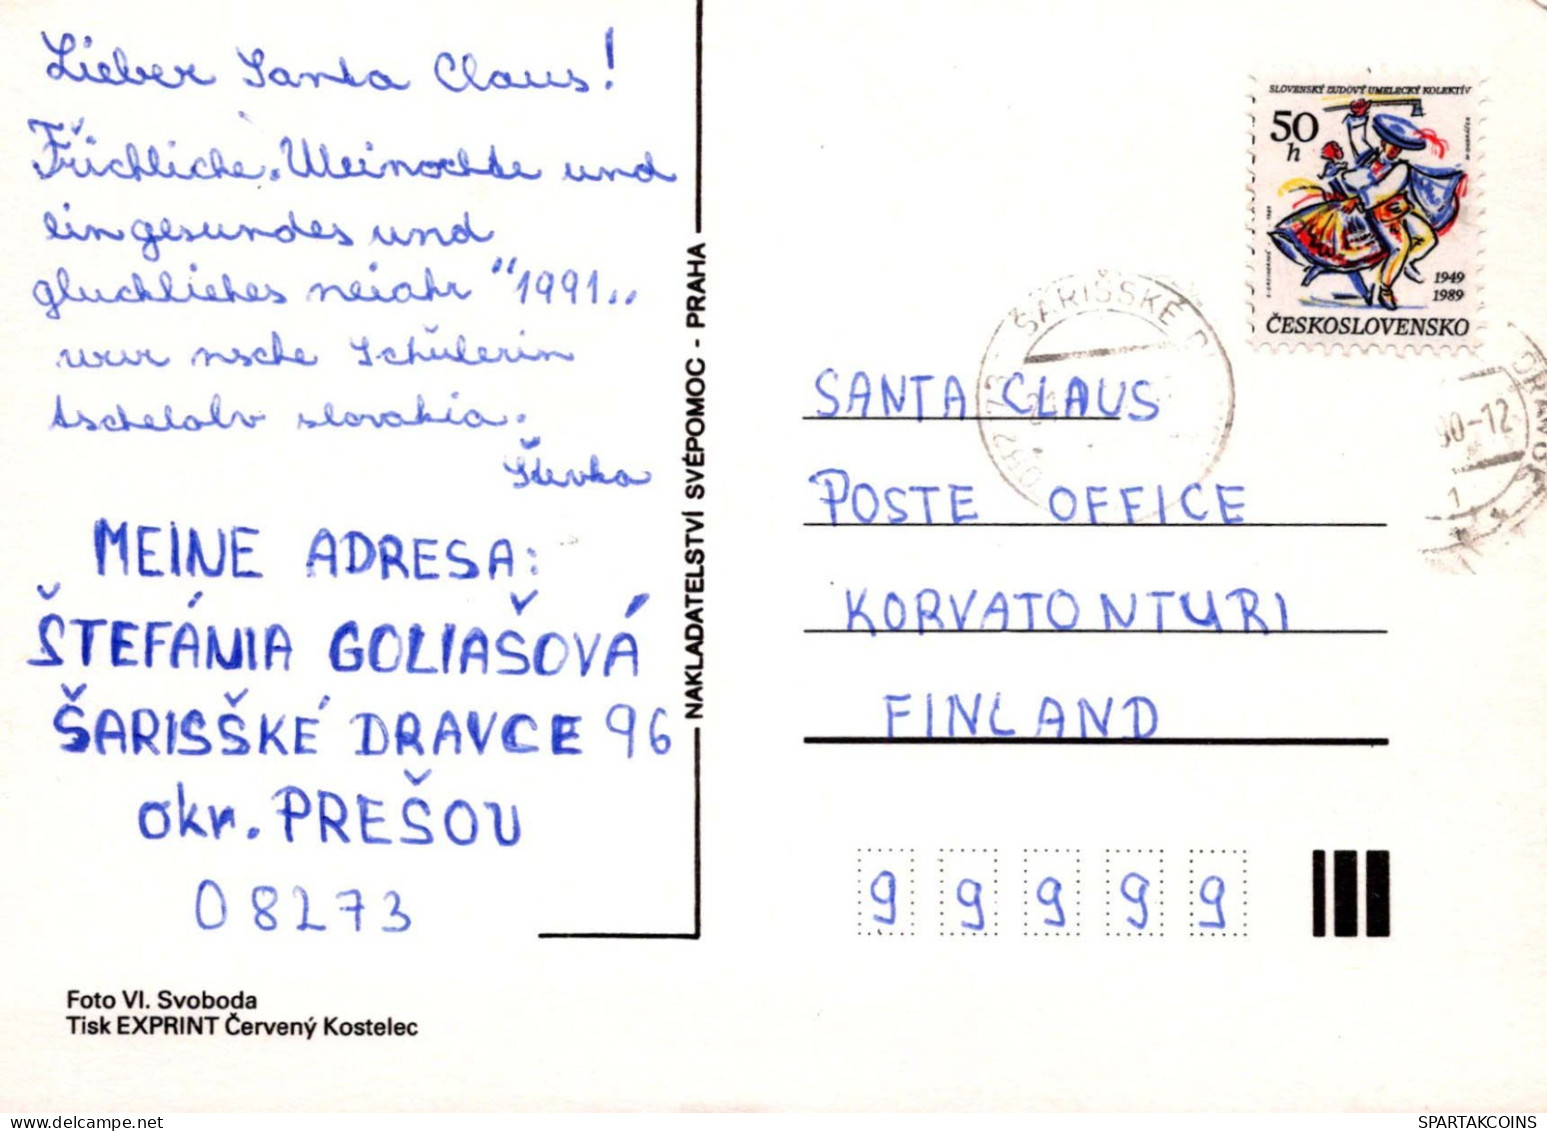 Lieber Santa Claus!
Frichliche. Weinochte und
ein gesundes und
gluckliches neiahr "1991..
wur nsche Schülerin
Aschelolv slovakia.
Števka
MEINE ADRESA:
ŠTEFÁNIA GOLIAŠOVÁ
ŠARISŠKÉ DRAVCE 96
okr. PREŠOU
08273
Foto Vl. Svoboda
Tisk EXPRINT Červený Kostelec
NAKLADATELSTVÍ SVÉPOMOC - PRAHA
SLOVENSKÝ ĽUDOVÝ UMELECKÝ KOLEKTÍV
50
h
1949
1989
ČESKOSLOVENSKO
ŠARIŠSKÉ
082 73
90-12
1
SANTA CLAUS
POSTE OFFICE
KORVATONTURI
FINLAND
9 9 9 9 9
SPARTAKCOINS